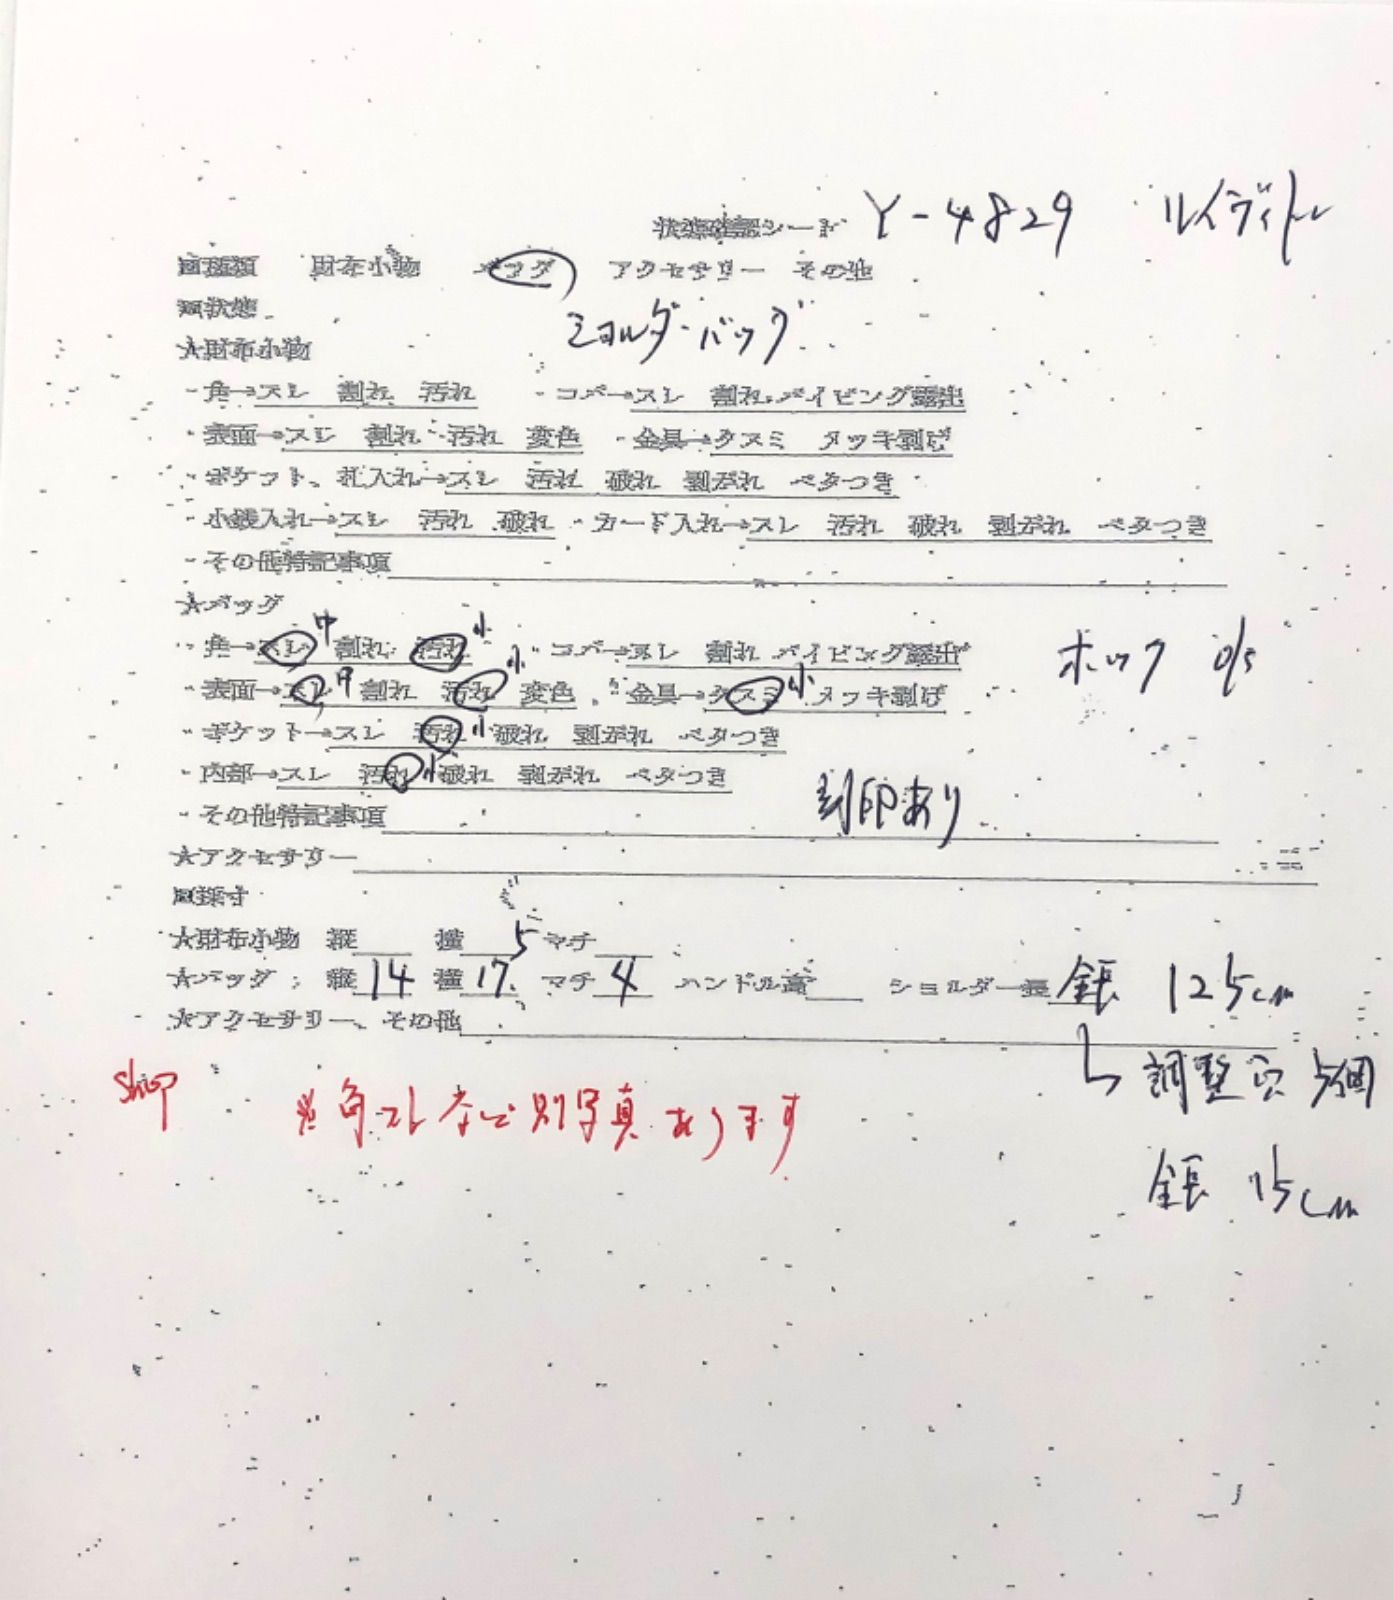 状態確認シート Y-4829 ルイヴィトン
■種類 財布小物 バッグ アクセサリー その他
■状態 ショルダーバッグ
★財布小物
・角→スレ 割れ 汚れ ・コバ→スレ 割れ パイピング露出
・表面→スレ 割れ 汚れ 変色 ・金具→クスミ メッキ剥げ
・ポケット、札入れ→スレ 汚れ 破れ 剥がれ ベタつき
・小銭入れ→スレ 汚れ 破れ ・カード入れ→スレ 汚れ 破れ 剥がれ ベタつき
・その他特記事項
★バッグ
・角→スレ中 割れ 汚れ小 ・コバ→スレ 割れ パイピング露出 ホック
・表面→スレ中 割れ 汚れ小 変色 ・金具→クスミ小 メッキ剥げ
・ポケット→スレ 汚れ小 破れ 剥がれ ベタつき
・内部→スレ 汚れ小 破れ 剥がれ ベタつき
・その他特記事項 刻印あり
★アクセサリー
■採寸
★財布小物 縦 横 マチ
★バッグ 縦14 横17.5 マチ4 ハンドル高 ショルダー長 全長 125cm
★アクセサリー、その他
↳ 調整穴 5個
全長 15cm
Shop ※角スレなど別写真あります